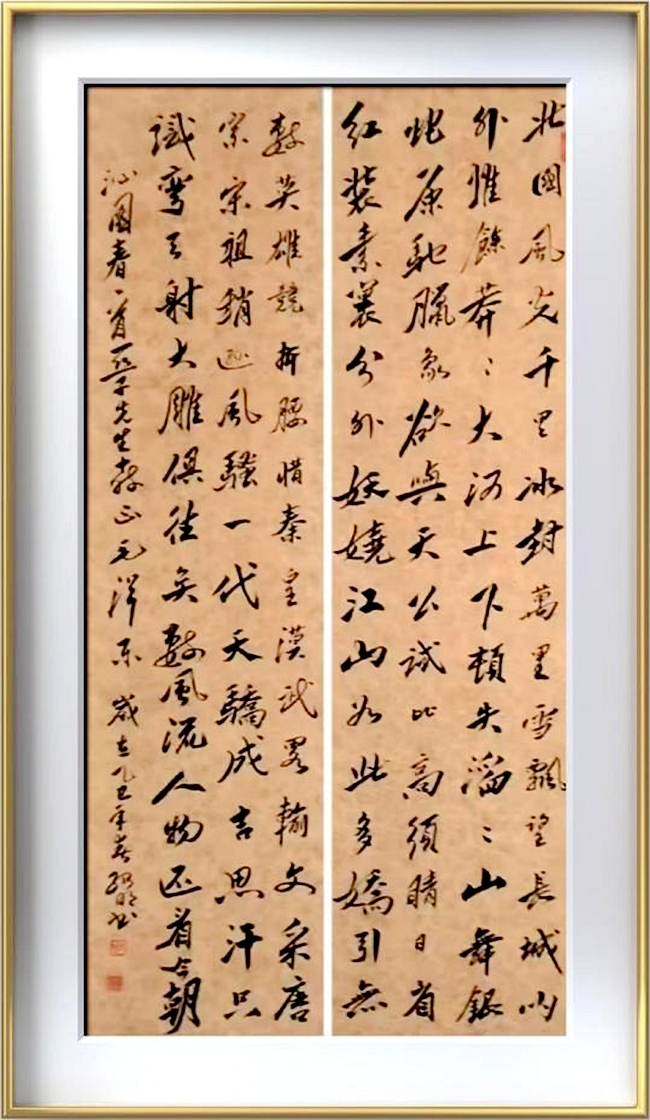 北國風光千里冰封萬里雪飄望長城内
外惟餘莽〻大河上下頓失滔〻山舞銀
蛇原馳臘象欲與天公試比高須晴日看
紅裝素裹分外妖嬈江山如此多嬌引無
數英雄競折腰惜秦皇漢武畧輸文采唐
宗宋祖稍遜風騷一代天驕成吉思汗只
識彎弓射大雕俱往矣數風流人物还看今朝
沁園春一首 先生教正毛澤東 歲在乙巳年春 書